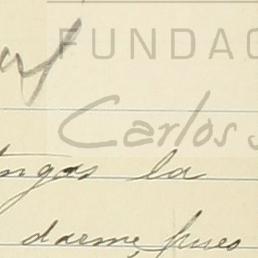 FUNDAÇ
Carlos
ngas la
darme, pues